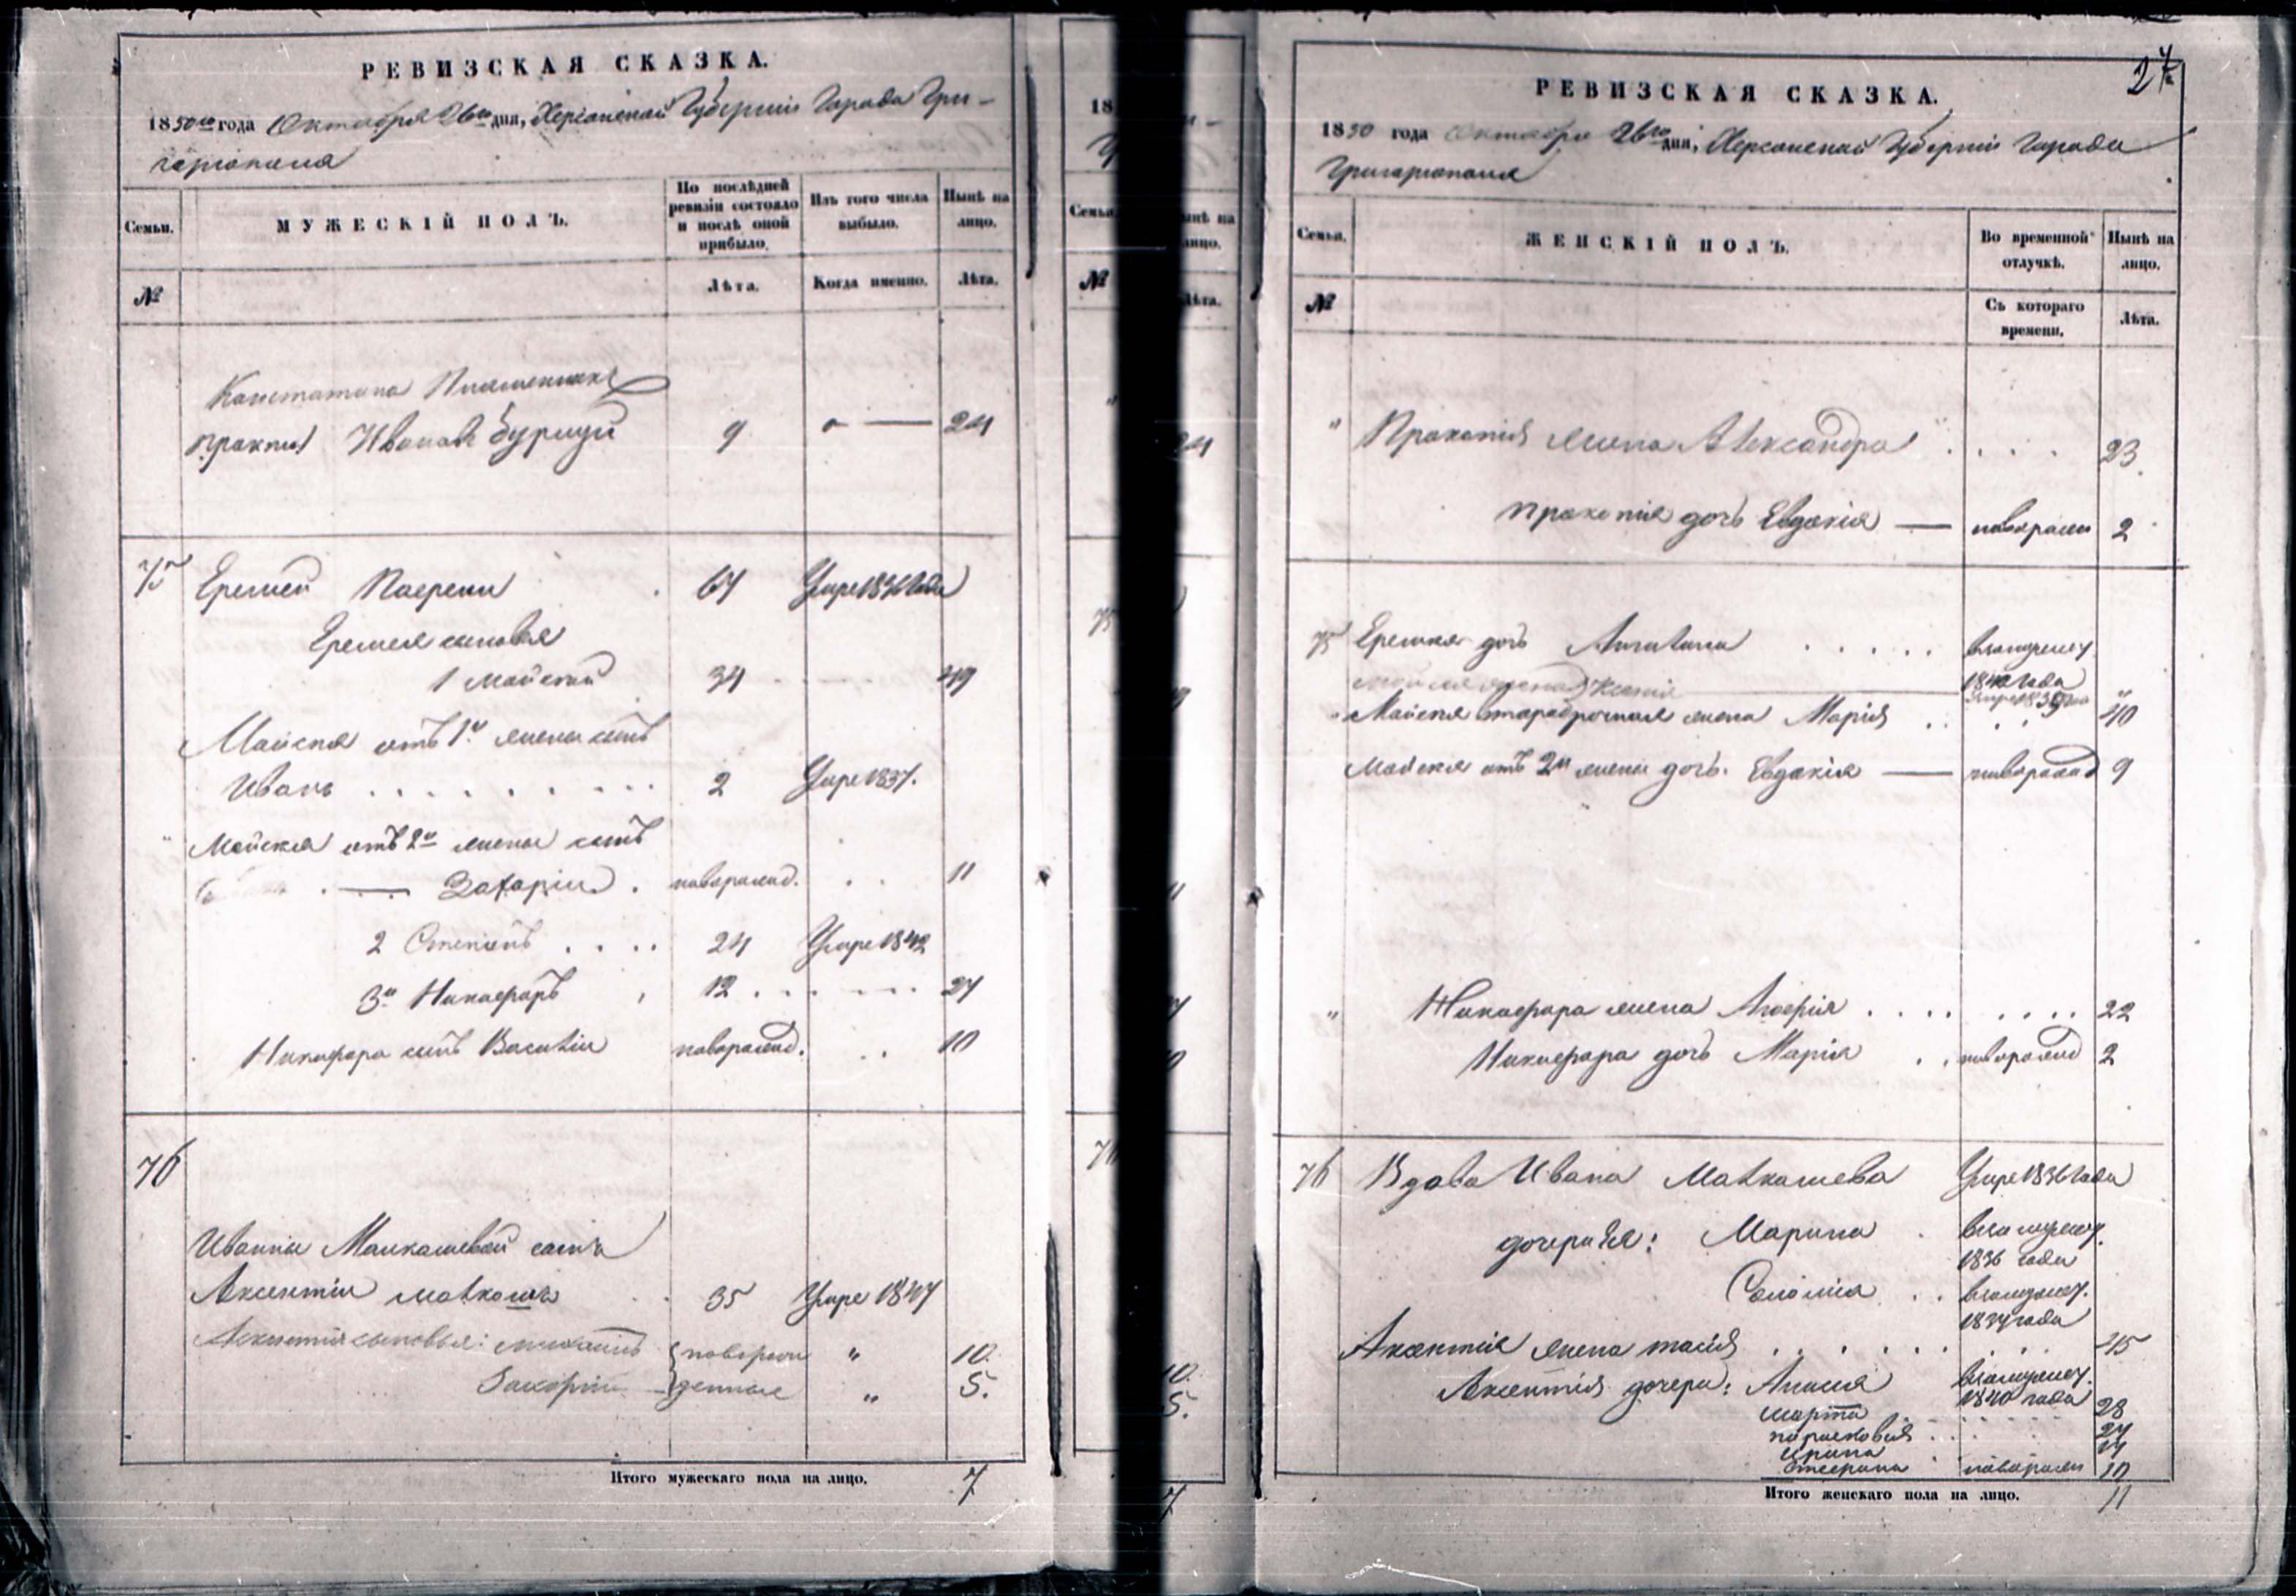 РЕВИЗСКАЯ СКАЗКА.
1850го года Октября 26го дня, Херсонской Губерніи Города Гри-
горіополя
Семьи.
МУЖЕСКІЙ ПОЛЪ.
По послѣдней ревизіи состояло и послѣ оной прибыло.
Изъ того числа выбыло.
Нынѣ на лицо.
№
Лѣта.
Когда именно.
Лѣта.
Константина
Иванов 9 24
75 Еремей 64 Умре 1836 года
Еремея сыновья
1 Мойсей 34 49
Мойсея отъ 1й жены сынъ
Иванъ 2 Умре 1837.
Мойсея отъ 2й жены сынъ
Захарій новорожд. 11
2 Степанъ 24 Умре 1842
3й Никифоръ 12 27
Никифора сынъ Василій новорожд. 10
76
Иванны Малкашевой сынъ
Аксентій 35 Умре 1847
Аксентія сыновья: Михаилъ новорож " 10.
Захарій денные " 5.
Итого мужескаго пола на лицо. 7
18
Семьи
№
75
76
ынѣ на
лицо.
Лѣта.
24
10.
5.
7
27
РЕВИЗСКАЯ СКАЗКА.
1850 года Октября 26го дня, Херсонской Губерніи Города
Григоріополя
Семьи.
ЖЕНСКІЙ ПОЛЪ.
Во временной отлучкѣ.
Нынѣ на лицо.
№
Съ котораго времени.
Лѣта.
" Прокопія жена Александра 23.
Прокопія дочь Евдокія — новорожд 2
75 Еремея дочь в замужест.
1840 года
Мойсея жена Ксенія
Мойсея второбрачная жена Марія 40
Мойсея отъ 2й жены дочь Евдокія — новорожд 9
" Никифора жена 22
Никифора дочь Марія новорожд 2
76 Вдова Ивана Малкашева Умре 1836 года
дочери ея: Марина в замужест.
1836 года
Соломія в замужест.
1837 года
Аксентія жена 45
Аксентія дочери: в замужест.
1840 года
Марта 28
Парасковія 24
Ирина
новорожд 10
Итого женскаго пола на лицо. 11